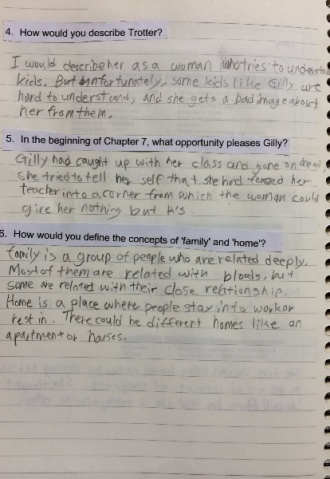 4. How would you describe Trotter?
I would describe her as a woman who tries to understand
kids. But unfortunately, some kids like Gilly are
hard to understand, and she gets a bad image about
her from them.
5. In the beginning of Chapter 7, what opportunity pleases Gilly?
Gilly had caught up with her class and gone on ahead
she tried to tell her self that she had forced her
teacher into a corner from which the woman could
give her nothing but A's.
6. How would you define the concepts of 'family' and 'home'?
family is a group of people who are related deeply.
Most of them are related with bloods, but
some are related with their close relationship.
Home is a place where people stay into work or
rest in. There could be different homes like an
apartment or houses.